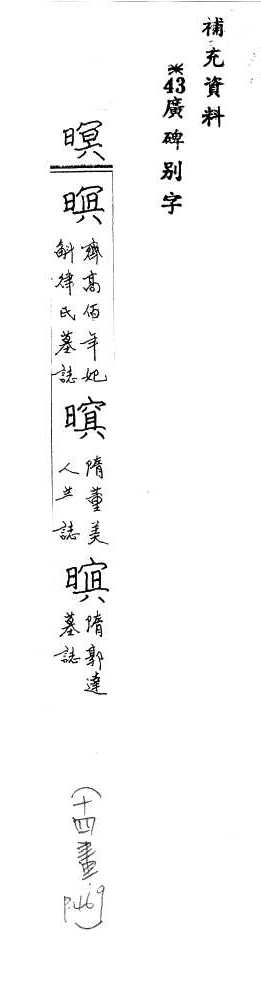 補充資料
※43廣碑別字
暝
暝
齊高佰年妃
斛律氏墓誌
隋董美
人誌
隋郭達
墓誌
(十四畫
P.469)